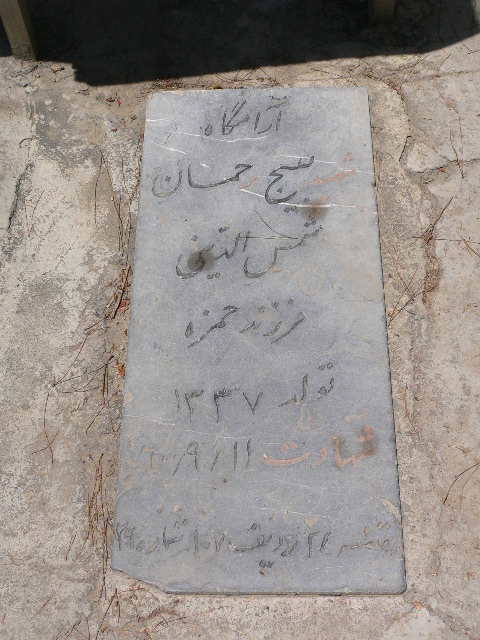 آرامگاه
شهید بسیج رحمان
شمس الدینی
فرزند حمزه
تولد ۱۳۳۷
شهادت ۶۰/۹/۱۱
قطعه ۲۴ ردیف ۱۰۷ شماره ۳۶